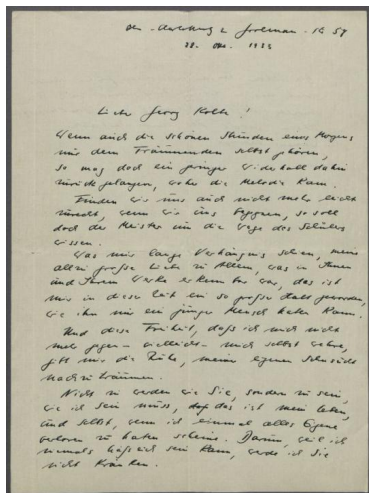 22. Okt. 1933
Lieber Georg Kolbe!
Wenn auch die schönen Stunden eines Morgens
nur dem Träumenden selbst gehören,
so mag doch ein geringer Widerhall dahin
zurück gelangen, woher die Melodie kam.
Finden wir uns auch nicht mehr leicht
zurecht, wenn wir uns begegnen, so soll
doch der Meister um die Wege des Schülers
wissen.
Was mir lange Verhängnis schien, meine
allzu große Liebe zu Allem, was in Ihnen
und Ihrem Werke erkennbar war, das ist
mir in dieser Zeit ein so großer Halt geworden,
wie ihn nur ein junger Mensch haben kann.
Und diese Freiheit, daß ich mich nicht
mehr gegen - vielleicht - mich selbst wehre,
gibt mir die Ruhe, meiner eigenen Sehnsucht
nachzuträumen.
Nicht zu werden wie Sie, sondern zu sein,
wie ich sein muss, das ist mein Leben,
und selbst, wenn ich einmal alles Eigene
verloren zu haben scheine. Darum, weil ich
niemals häßlich sein kann, werde ich Sie
nicht kränken.